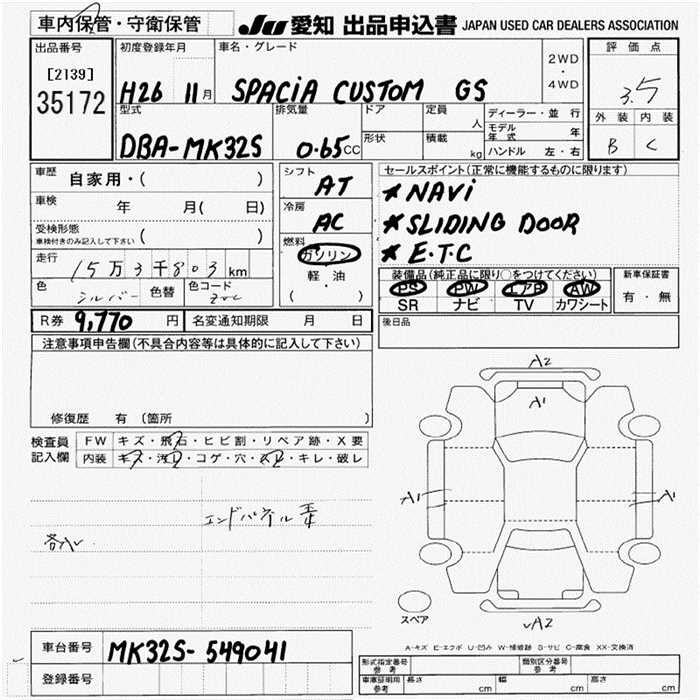 車内保管・守衛保管
JU 愛知 出品申込書 JAPAN USED CAR DEALERS ASSOCIATION
出品番号
[2139]
35172
初度登録年月
H26 11月
車名・グレード
SPACiA CUSTOM GS
2WD
・
4WD
評価点
3.5
外装 内装
B C
型式
DBA-MK32S
排気量
0.65CC
ドア
形状
定員
人
積載
kg
ディーラー・並行
モデル年式 年
ハンドル 左・右
車歴
自家用・( )
車検
年 月( 日)
受検形態
車検付きのみ記入して下さい ( )
走行
15万3千803km
色
シルバー
色替
色コード
シフト
AT
冷房
AC
燃料
ガソリン
軽・油
( )
セールスポイント(正常に機能するものに限ります)
★NAVi
★SLIDING DOOR
★E.T.C
装備品(純正品に限り○をつけてください)
PS PW エアB AW
SR ナビ TV カワシート
新車保証書
有・無
R券 9,770円
名変通知期限 月 日
後日品
注意事項申告欄(不具合内容等は具体的に記入して下さい)
修復歴 有 (箇所 )
検査員
記入欄
FW キズ・飛石・ヒビ割・リペア跡・X要
内装 キズ・汚れ・コゲ・穴・スレ・キレ・破レ
エンドパネル
A2
A1
A1 A1
スペア
A2
A-キズ E-エクボ U-凹み W-補修跡 S-サビ C-腐食 XX-交換済
車台番号 MK32S-549041
登録番号
形式指定番号
参考
類別区分番号
参考
車庫証明用
参考
長さ cm 幅 cm 高さ cm